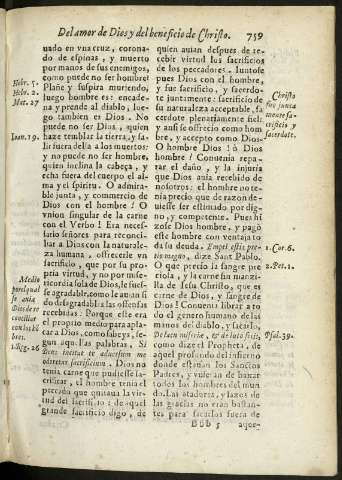 Del amor de Dios y del beneficio de Christo. 759
uado en vna cruz, corona-
do de espinas, y muerto
por manos de sus enemigos,
como puede no ser hombre?
Plañe y suspira muriendo,
luego hombre es: encade-
na y prende al diablo, lue-
go tambien es Dios. No
puede no ser Dios, quien
haze temblar la tierra, y sa-
lir fuera della a los muertos:
y no puede no ser hombre,
quien inclina la cabeça, y
echa fuera del cuerpo el al-
ma y el spiritu. O admira-
ble junta, y commercio de
Dios con el hombre! O
vnion singular de la carne
con el Verbo! Era neces-
sario señores para reconci-
liar a Dios con la naturale-
za humana, offrecerle vn
sacrificio, que por su pro-
pria virtud, y no por mise-
ricordia sola de Dios, le fues-
se agradable, como le auian si
do desagradables las offensas
recebidas: Porque este era
el proprio medio para apla-
car a Dios, como sabeys, se-
gun aquellas palabras, Si
Deus incitat te aduersum me
odoretur sacrificium. Dios no
tenia carne que pudiesse sa-
crificar, el hombre tenia el
peccado que quitaua la vir-
tud del sacrificio: de aquel
grande sacrificio digo, de
Hebr. 5.
Hebr. 2.
Mat. 27
Ioan. 19.
Medio
porque el
hombres.
1. Reg. 26
quien auian despues de re-
cebir virtud los sacrificios
de los peccadores. Iuntose
pues Dios con el hombre,
y fue sacrificio, y sacerdo-
te juntamente: sacrificio de
su naturaleza acceptable, sa
cerdote plenariamente fiel:
y ansi se offrecio como hom
bre, y accepto como Dios.
O hombre Dios! ô Dios
hombre! Conuenia repa-
rar el daño, y la injuria
que Dios auia recebido de
nosotros: el hombre no te-
nia precio que de razon de-
uiesse ser estimado por dig-
no, y competente. Pues hi
zose Dios hombre, y pagò
este hombre con ventaja to
da su deuda. Empti estis pre-
tio magno, dize Sant Pablo.
O que precio la sangre pre
ciosa, y la carne sin manzi-
lla de Iesu Christo, que es
carne de Dios, y sangre de
Dios! Conuenia librar a to
do el genero humano de las
manos del diablo, y sacarlo,
De lacu miseriæ, & de luto fecis,
como dize el Propheta, de
aquel profundo del infierno
donde estauan los Sanctos
Padres, y vuieran de baxar
todos los hombres del mun
do. Las ataduras, y lazos de
las gracias no eran bastan-
tes para sacarlos fuera de
Christo
fue junta
mente sa-
crificio y
sacerdote.
1. Cor. 6.
2. Pet. 1.
Psal. 39.
Bbb 5
aque-